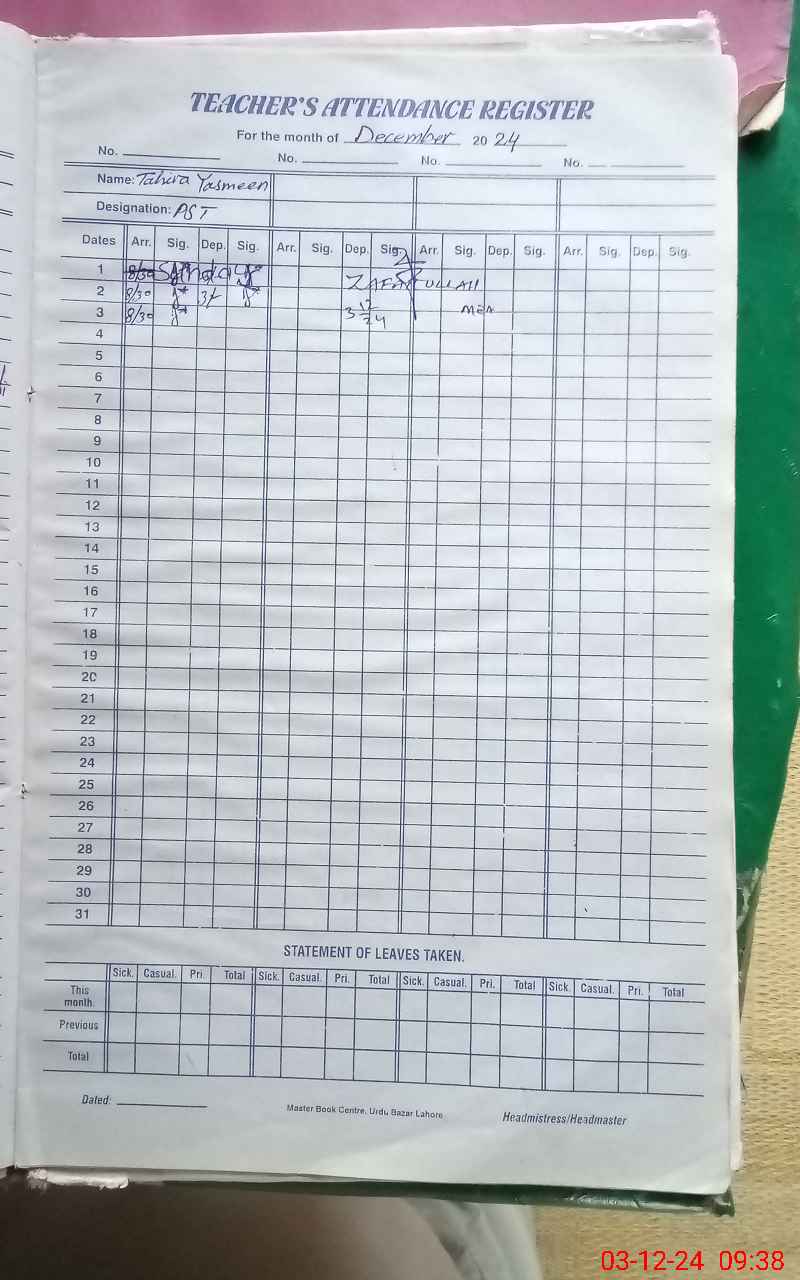 TEACHER'S ATTENDANCE REGISTER
For the month of December 2024
No. No. No. No.
Name: Tahira Yasmeen
Designation: PST
Dates Arr. Sig. Dep. Sig. Arr. Sig. Dep. Sig. Arr. Sig. Dep. Sig. Arr. Sig. Dep. Sig.
1 8/30 Sunday
ZAFARULLAH
2 8/30
3 8/30 3 12/24 MEA
4
5
6
7
8
9
10
11
12
13
14
15
16
17
18
19
20
21
22
23
24
25
26
27
28
29
30
31
STATEMENT OF LEAVES TAKEN.
Sick. Casual. Pri. Total Sick. Casual. Pri. Total Sick. Casual. Pri. Total Sick. Casual. Pri. Total
This month.
Previous
Total
Dated: Master Book Centre, Urdu Bazar Lahore Headmistress/Headmaster
03-12-24 09:38